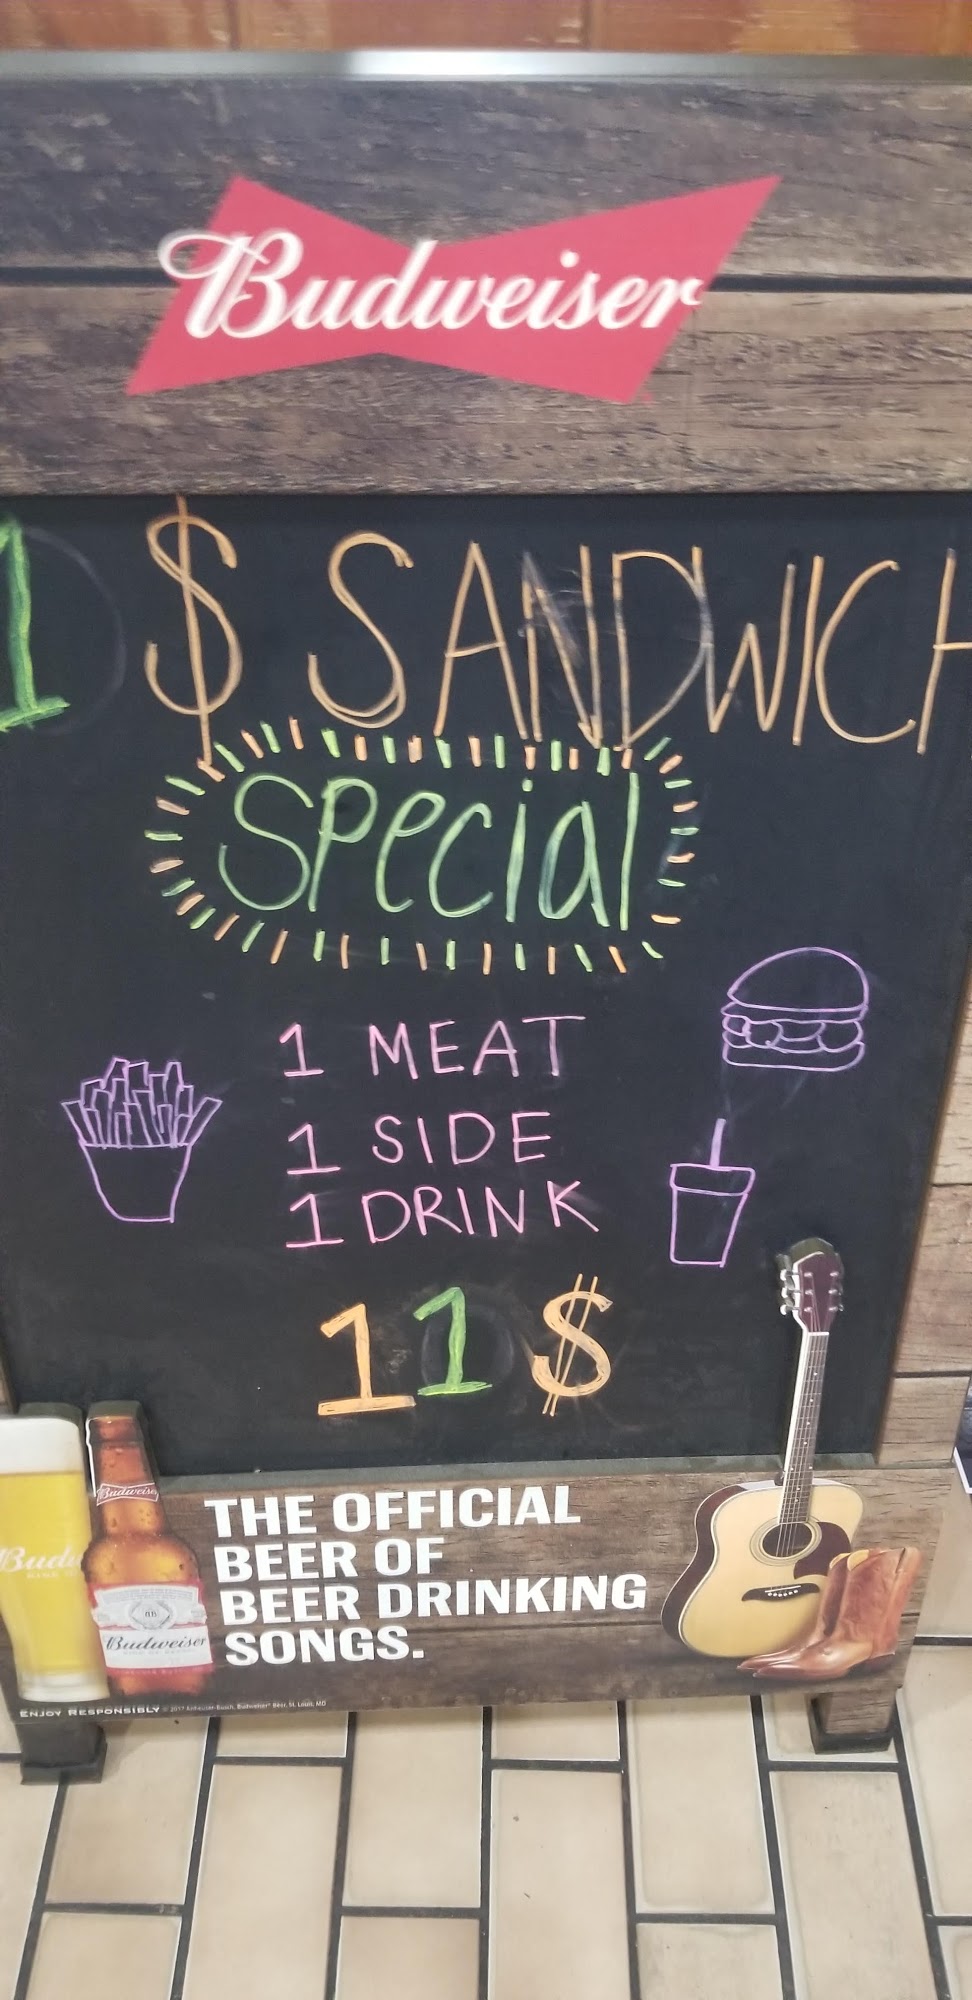 Budweiser
1 $ SANDWICH
Special
1 MEAT
1 SIDE
1 DRINK
11 $
THE OFFICIAL
BEER OF
BEER DRINKING
SONGS.
Budweiser
Budweiser
ENJOY RESPONSIBLY © 2017 Anheuser-Busch, Budweiser® Beer, St. Louis, MO